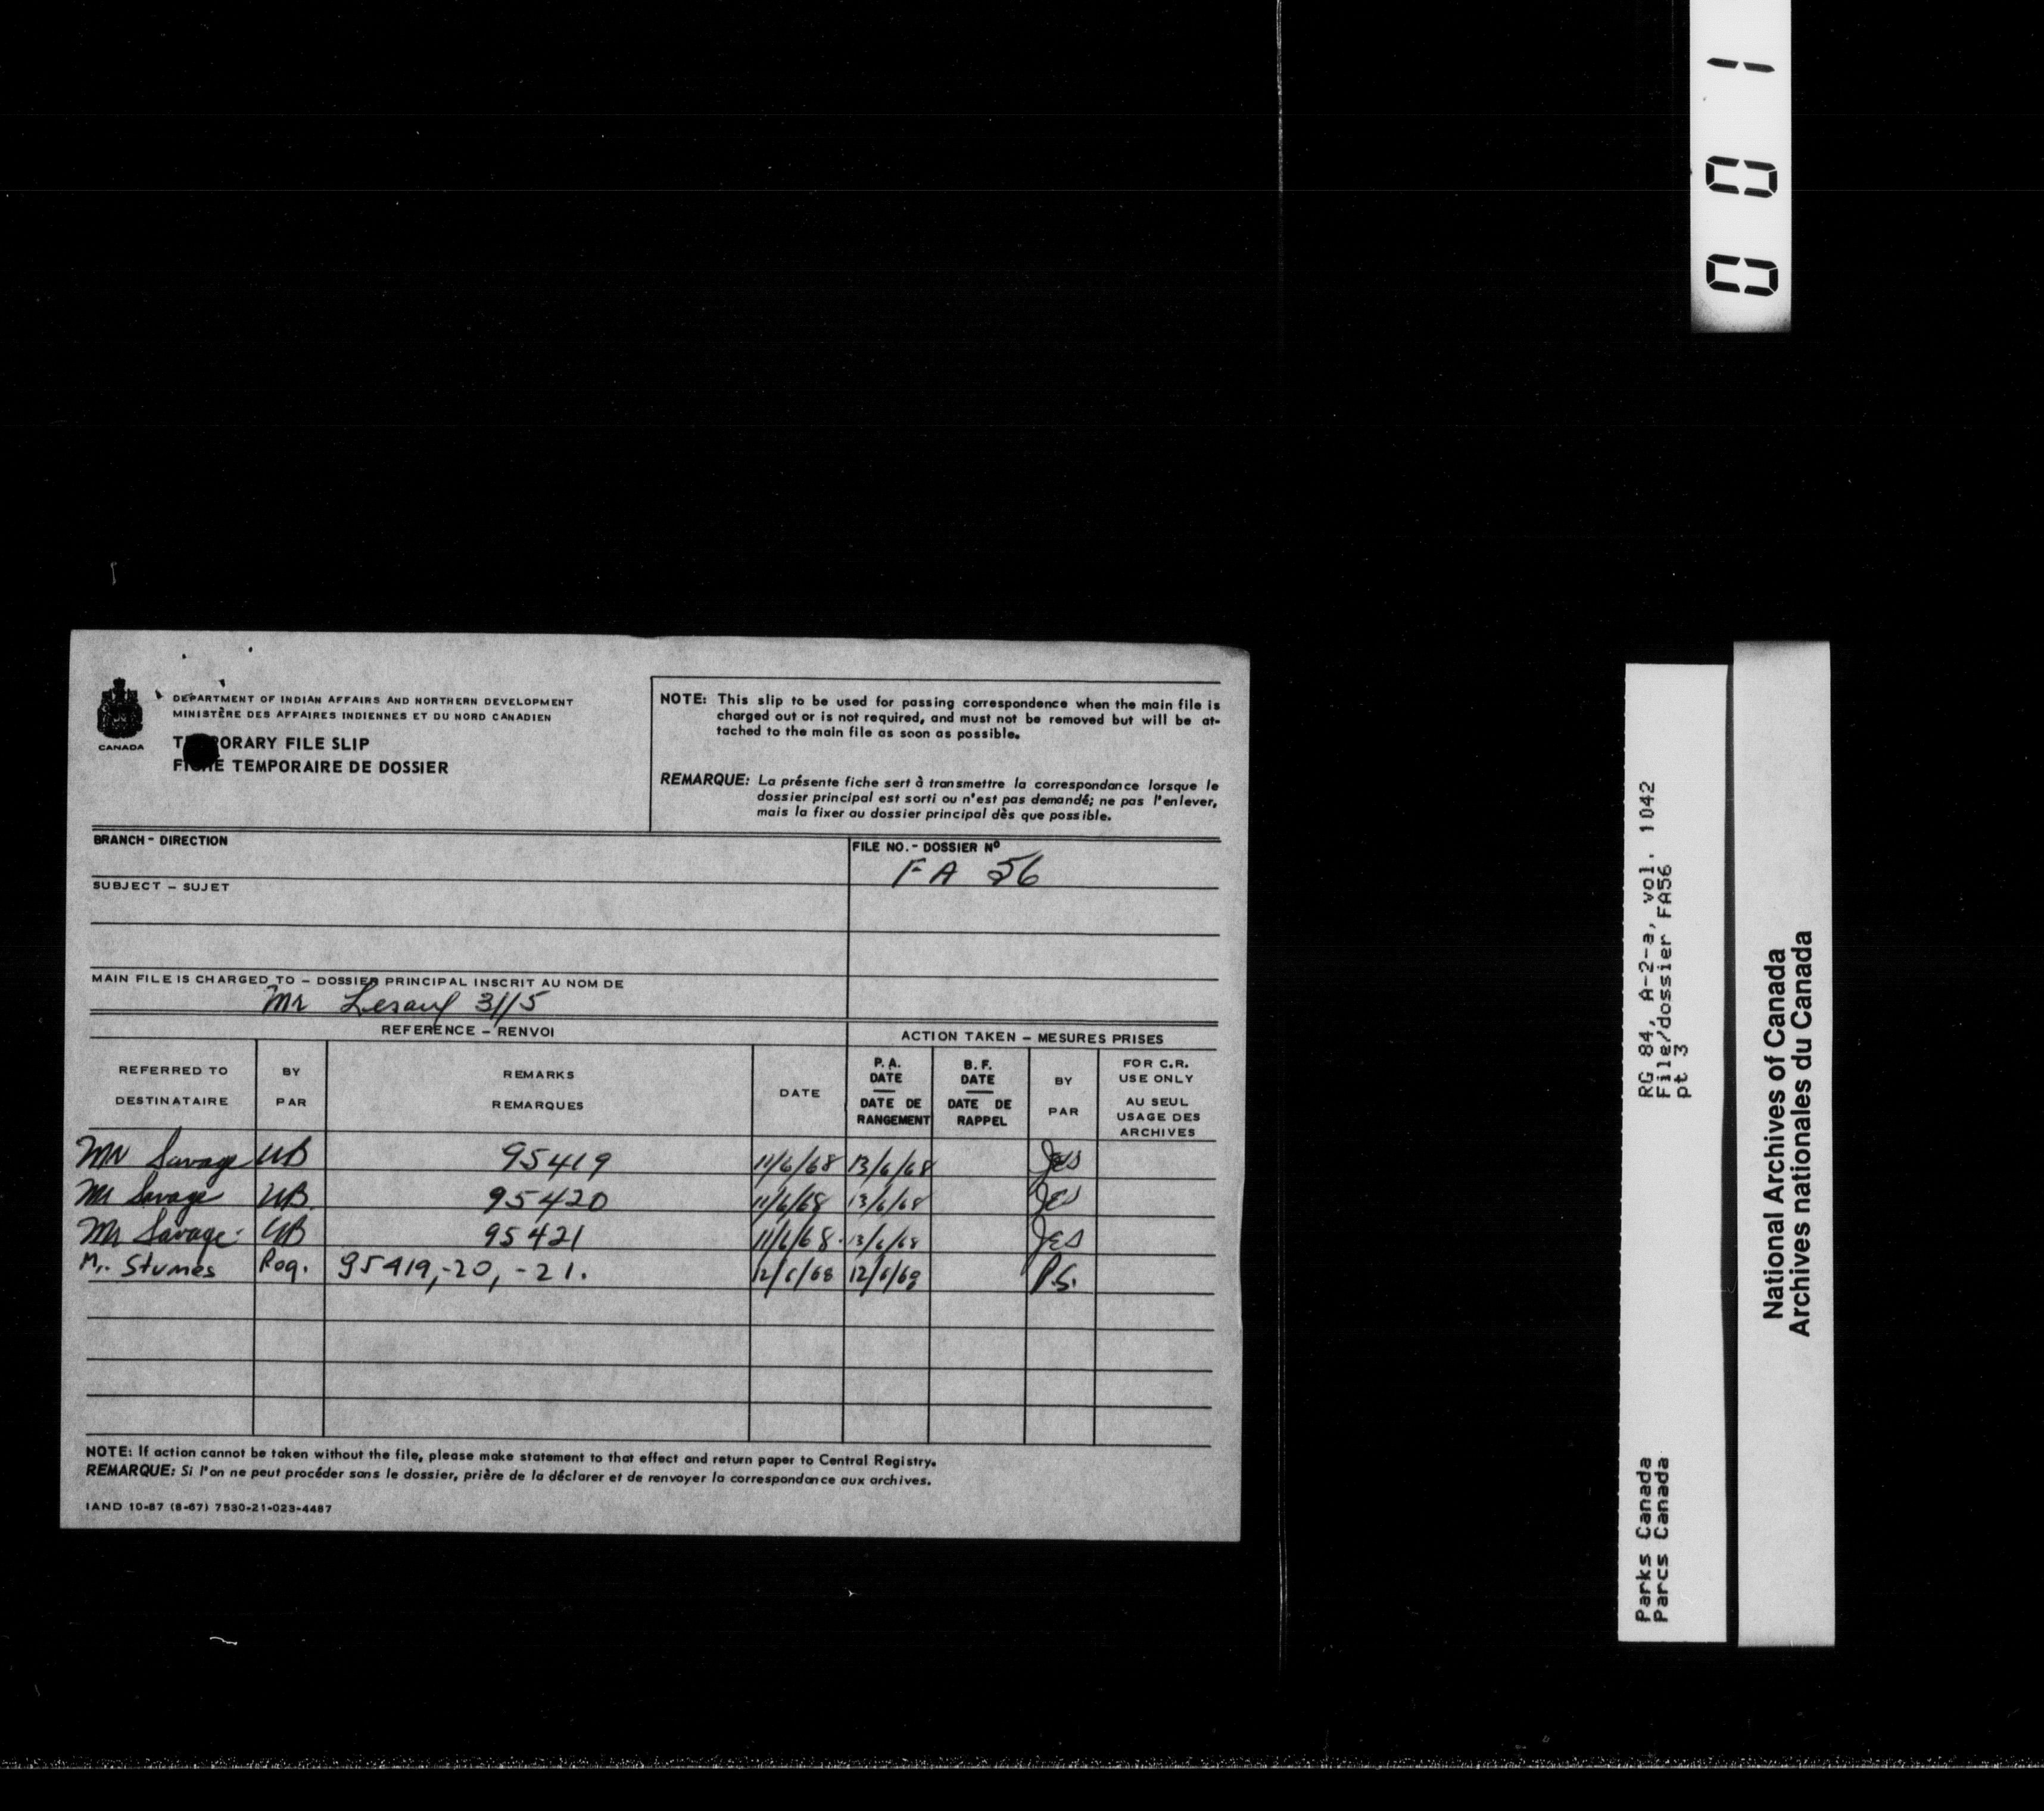 001
DEPARTMENT OF INDIAN AFFAIRS AND NORTHERN DEVELOPMENT
MINISTÈRE DES AFFAIRES INDIENNES ET DU NORD CANADIEN
CANADA
T PORARY FILE SLIP
FICHE TEMPORAIRE DE DOSSIER
NOTE: This slip to be used for passing correspondence when the main file is
charged out or is not required, and must not be removed but will be at-
tached to the main file as soon as possible.
REMARQUE: La présente fiche sert à transmettre la correspondance lorsque le
dossier principal est sorti ou n'est pas demandé; ne pas l'enlever,
mais la fixer au dossier principal dès que possible.
BRANCH - DIRECTION
FILE NO. - DOSSIER Nº
FA 56
SUBJECT - SUJET
MAIN FILE IS CHARGED TO - DOSSIER PRINCIPAL INSCRIT AU NOM DE
Mr 31/5
REFERENCE - RENVOI
ACTION TAKEN - MESURES PRISES
REFERRED TO
DESTINATAIRE
BY
PAR
REMARKS
REMARQUES
DATE
P.A.
DATE
DATE DE
RANGEMENT
B.F.
DATE
DATE DE
RAPPEL
BY
PAR
FOR C.R.
USE ONLY
AU SEUL
USAGE DES
ARCHIVES
Mr Savage UB 95419 11/6/68 13/6/68 JES
Mr Savage UB 95420 11/6/68 13/6/68 JES
Mr Savage UB 95421 11/6/68 13/6/68 JES
Mr. Stumes 95419,-20,-21. 12/6/68 12/6/68 P.S.
NOTE: If action cannot be taken without the file, please make statement to that effect and return paper to Central Registry.
REMARQUE: Si l'on ne peut procéder sans le dossier, prière de la déclarer et de renvoyer la correspondance aux archives.
IAND 10-87 (8-67) 7530-21-023-4487
RG 84, A-2-a, vol. 1042
File/dossier FA56
pt 3
Parks Canada
Parcs Canada
National Archives of Canada
Archives nationales du Canada